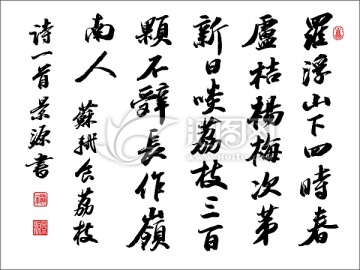 羅浮山下四時春
盧桔楊梅次第
新日啖荔枝三百
顆不辭長作嶺
南人 蘇軾食荔枝
詩一首景源書